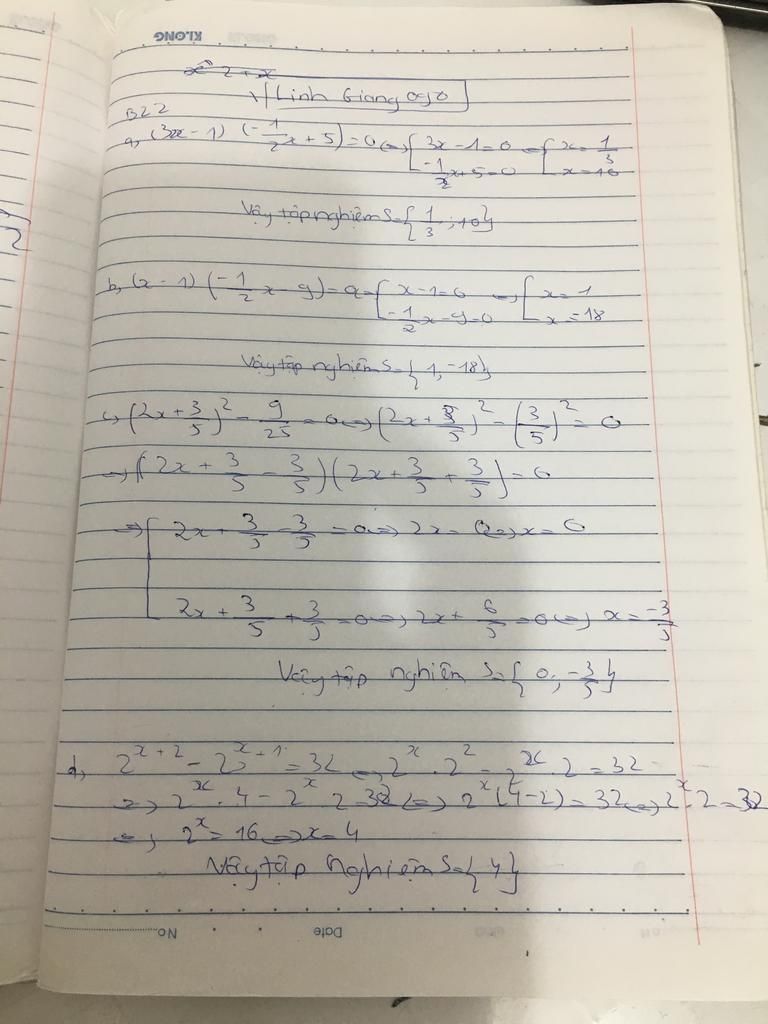 KLONG
x² 2 + x
Linh Giang 090
B22
a, (3x - 1) (-1/2 x + 5) = 0 ⇔ [3x - 1 = 0; -1/2 x + 5 = 0 ⇔ [x = 1/3; x = 10
Vậy tập nghiệm S = {1/3 ; 10}
b, (x - 1) (-1/2 x - 9) = 0 ⇔ [x - 1 = 0; -1/2 x - 9 = 0 ⇔ [x = 1; x = 18
Vậy tập nghiệm S = {1, -18}
c, (2x + 3/5)² - 9/25 = 0 ⇔ (2x + 3/5)² - (3/5)² = 0
⇔ (2x + 3/5 - 3/5) (2x + 3/5 + 3/5) = 0
⇔ [2x + 3/5 - 3/5 = 0 ⇔ 2x = 0 ⇔ x = 0
2x + 3/5 + 3/5 = 0 ⇔ 2x + 6/5 = 0 ⇔ x = -3/5
Vậy tập nghiệm S = {0 ; -3/5}
d, 2^(x+2) - 2^(x+1) = 32 ⇔ 2^x . 2² - 2^x . 2 = 32
⇔ 2^x . 4 - 2^x . 2 = 32 ⇔ 2^x (4 - 2) = 32 ⇔ 2^x . 2 = 32
⇔ 2^x = 16 ⇔ x = 4
Vậy tập nghiệm S = {4}
No. Date